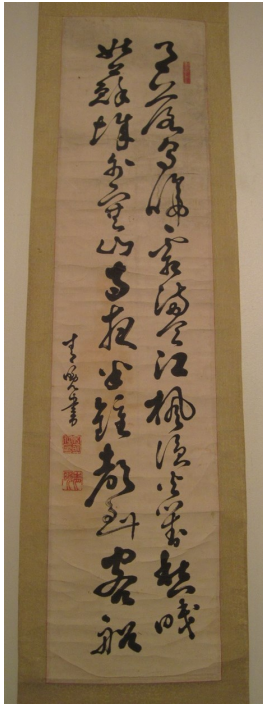 月落烏啼霜滿天江楓漁火對愁眠
姑蘇城外寒山寺夜半鐘聲到客船
書